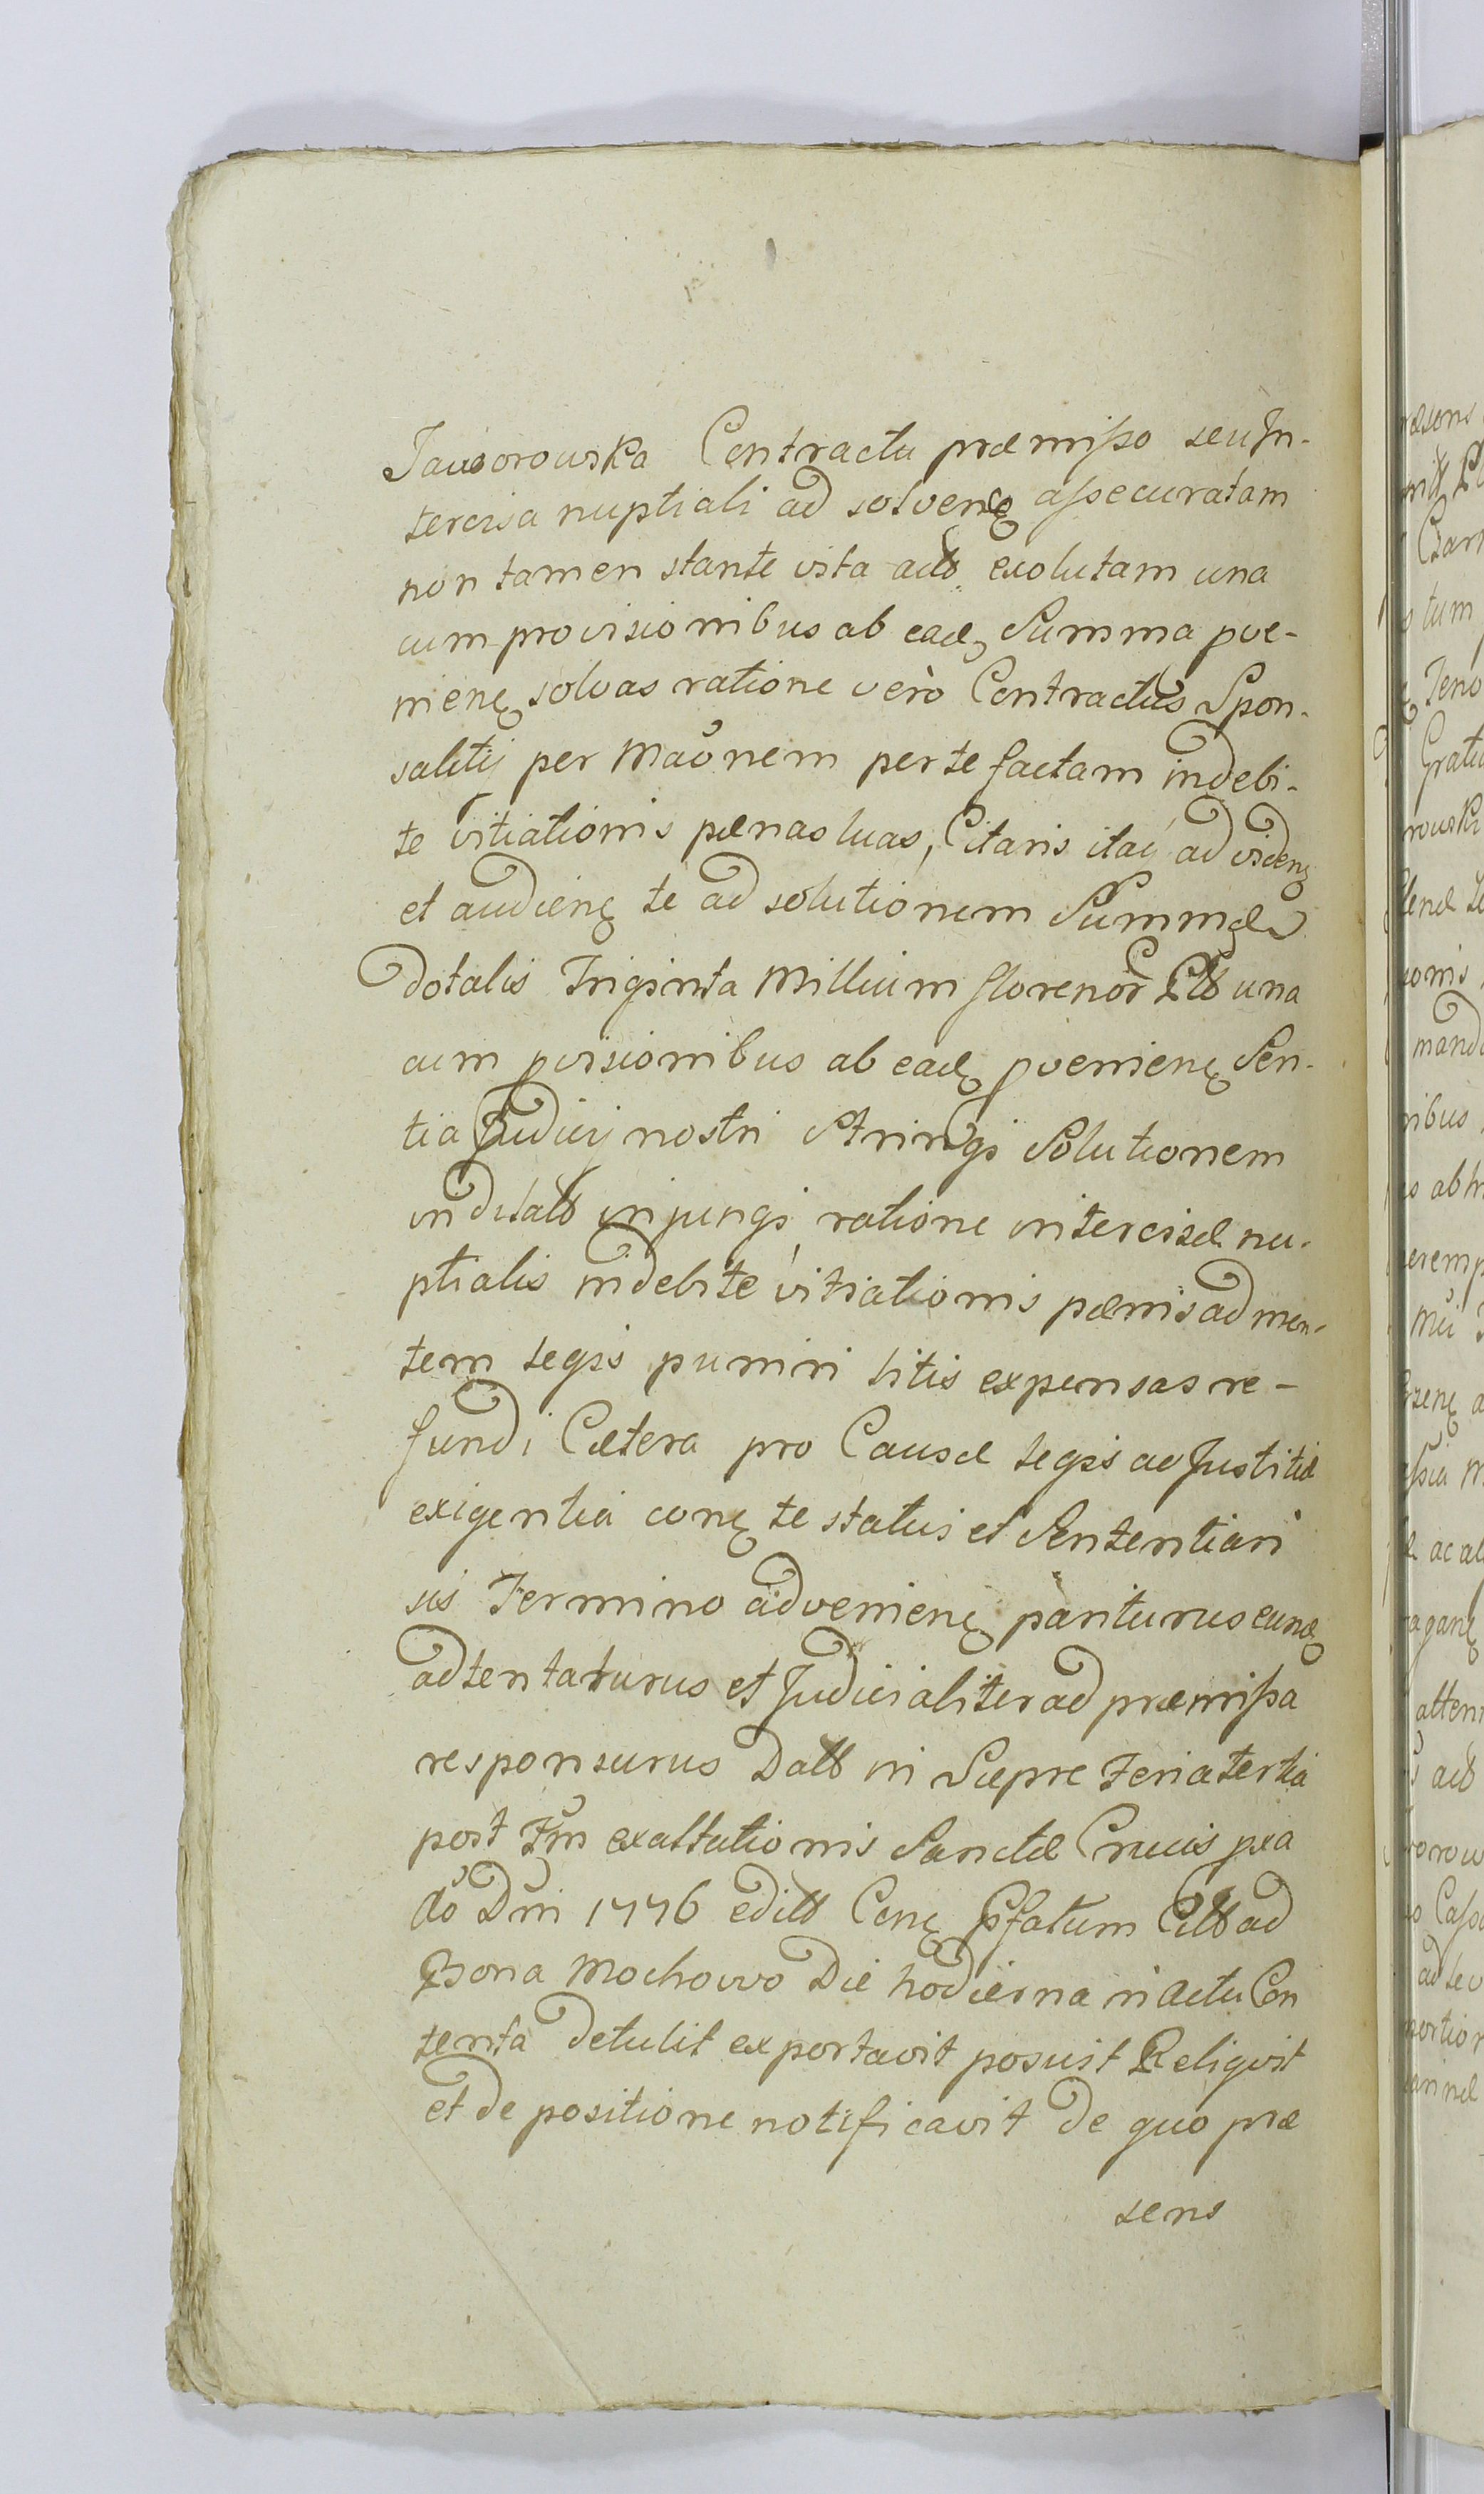 Jaworowska Contractu præmisso seu In-
tercisa nuptiali ad solvenę assecuratam
non tamen stante vita exolutam una
cum provisionibus ab eadę Summa pve-
nienę solvas ratione verò Contractûs Spon-
salitij per Maonem per te factam indebi-
te vitiationis pænas luas, Citaris itaq ad videnę
et audienę te ad solutionem Summæ
dotalis Triginta Millium florenor Plł una
cum pvisionibus ab eadę pvenienę Sen-
tia Judicij nostri Stringi Solutionem
indilatt injungi ratione intercisæ nu-
ptialis indebite vitiationis pænis ad men-
tem legis puniri litis expensas re-
fundi Cætera pro Causæ legis ac Justitiæ
exigentia conę te statui et Sententiari
sis Termino advenienę pariturus eundę
adtentaturus et Judicialiter ad præmissa
responsurus Datt in Sieprc Feria tertia
post Fm exaltationis Sanctæ Crucis pxa
Ao Dni 1776 editt Conę Pfatum Citt ad
Bona Mochowo Die hodierna in actu Con
tenta detulit exportavit posuit Reliqvit
et de positione notificavit de quo præ
sens